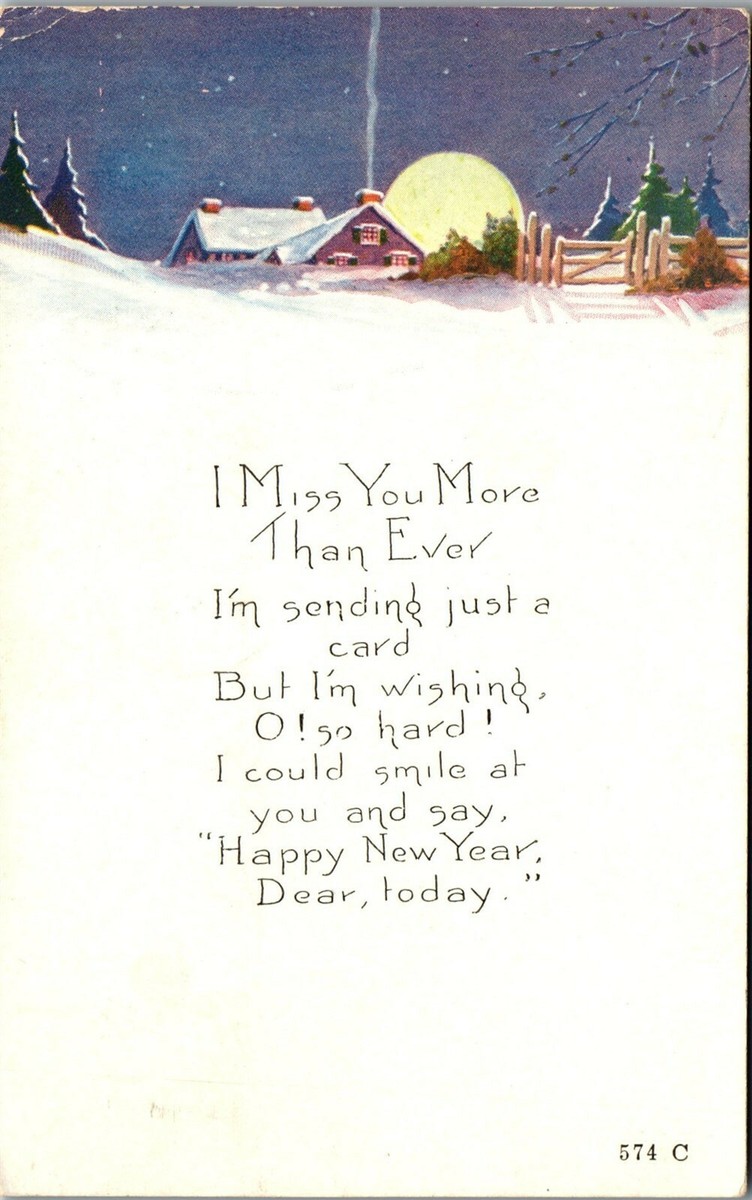 I Miss You More
Than Ever
I'm sending just a
card
But I'm wishing,
O! so hard!
I could smile at
you and say,
"Happy New Year,
Dear, today."
574 C